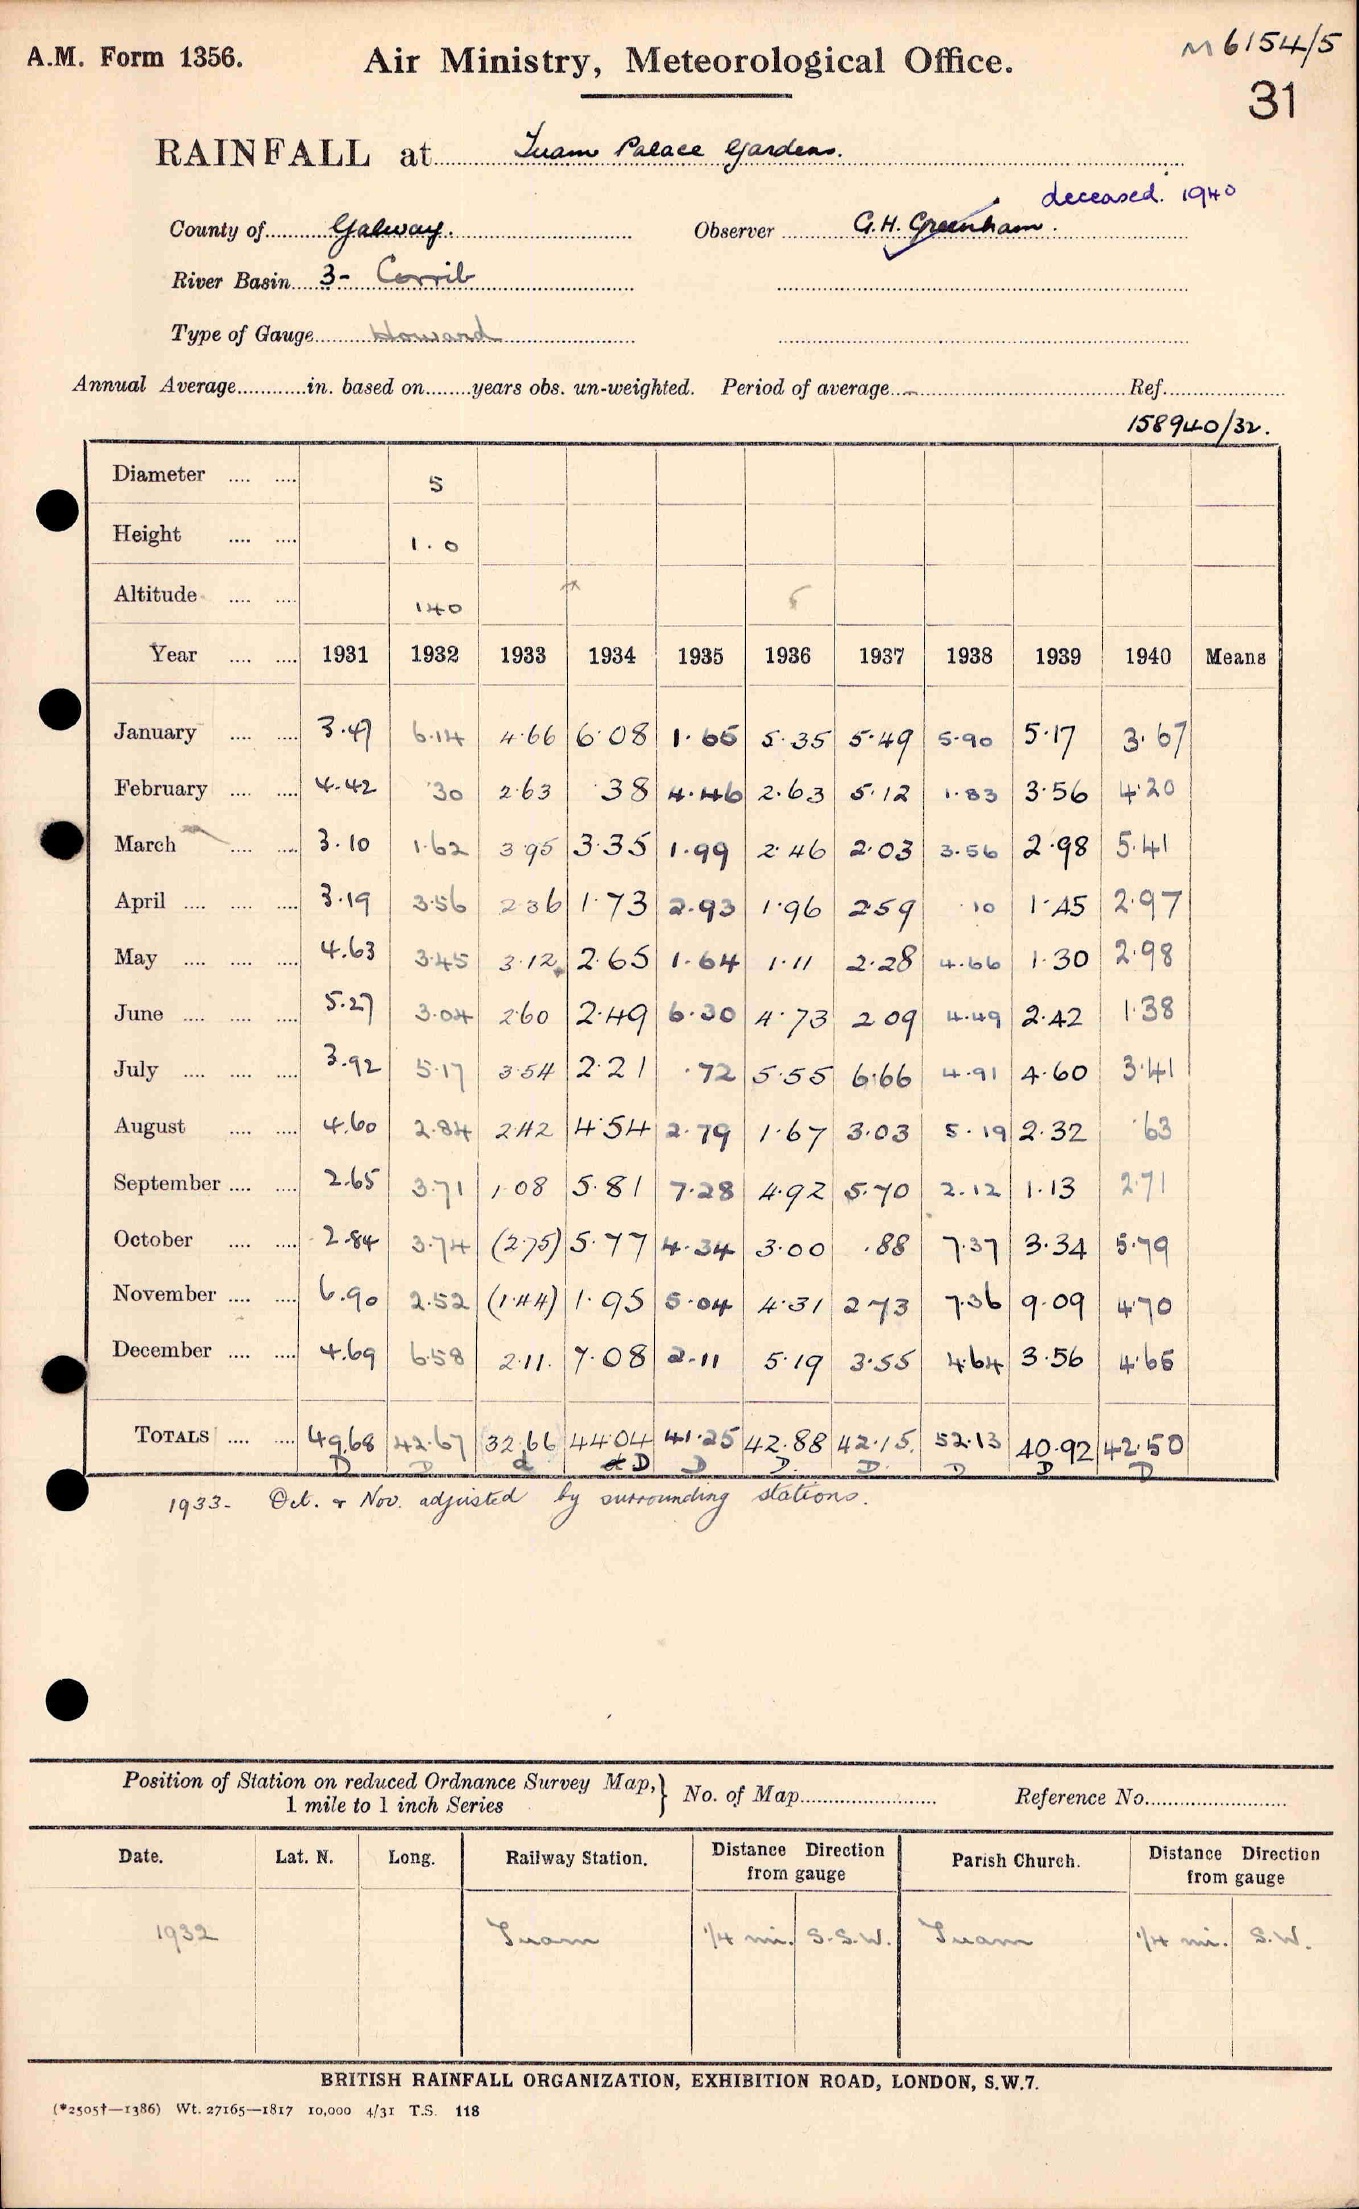 A.M. Form 1356.
Air Ministry, Meteorological Office.
M 6154/5
31
RAINFALL at Tuam Palace Gardens.
deceased. 1940
County of Galway. Observer G.H. Greenham.
River Basin 3- Corrib
Type of Gauge Howard
Annual Average in. based on years obs. un-weighted. Period of average Ref.
158940/32.
Diameter 5
Height 1.0
Altitude 140
Year 1931 1932 1933 1934 1935 1936 1937 1938 1939 1940 Means
January 3.47 6.14 4.66 6.08 1.65 5.35 5.49 5.90 5.17 3.67
February 4.42 .30 2.63 .38 4.46 2.63 5.12 1.83 3.56 4.20
March 3.10 1.62 3.95 3.35 1.99 2.46 2.03 3.56 2.98 5.41
April 3.19 3.56 2.36 1.73 2.93 1.96 2.59 .10 1.45 2.97
May 4.63 3.45 3.12 2.65 1.64 1.11 2.28 4.66 1.30 2.98
June 5.27 3.04 2.60 2.49 6.30 4.73 2.09 4.49 2.42 1.38
July 3.92 5.17 3.54 2.21 .72 5.55 6.66 4.91 4.60 3.41
August 4.60 2.84 2.42 4.54 2.79 1.67 3.03 5.19 2.32 .63
September 2.65 3.71 1.08 5.81 7.28 4.92 5.70 2.12 1.13 2.71
October 2.84 3.74 (2.75) 5.77 4.34 3.00 .88 7.37 3.34 5.79
November 6.90 2.52 (1.44) 1.95 5.04 4.31 2.73 7.36 9.09 4.70
December 4.69 6.58 2.11. 7.08 2.11 5.19 3.55 4.64 3.56 4.65
TOTALS 49.68 42.67 32.66 44.04 41.25 42.88 42.15. 52.13 40.92 42.50
D D d D D D. D. D D D
1933- Oct. & Nov. adjusted by surrounding stations.
Position of Station on reduced Ordnance Survey Map,
1 mile to 1 inch Series
No. of Map Reference No.
Date. Lat. N. Long. Railway Station. Distance Direction from gauge Parish Church. Distance Direction from gauge
1932 Tuam 1/4 mi. S.S.W. Tuam 1/4 mi. S.W.
BRITISH RAINFALL ORGANIZATION, EXHIBITION ROAD, LONDON, S.W.7.
(*2505†—1386) Wt. 27165—1817 10,000 4/31 T.S. 118